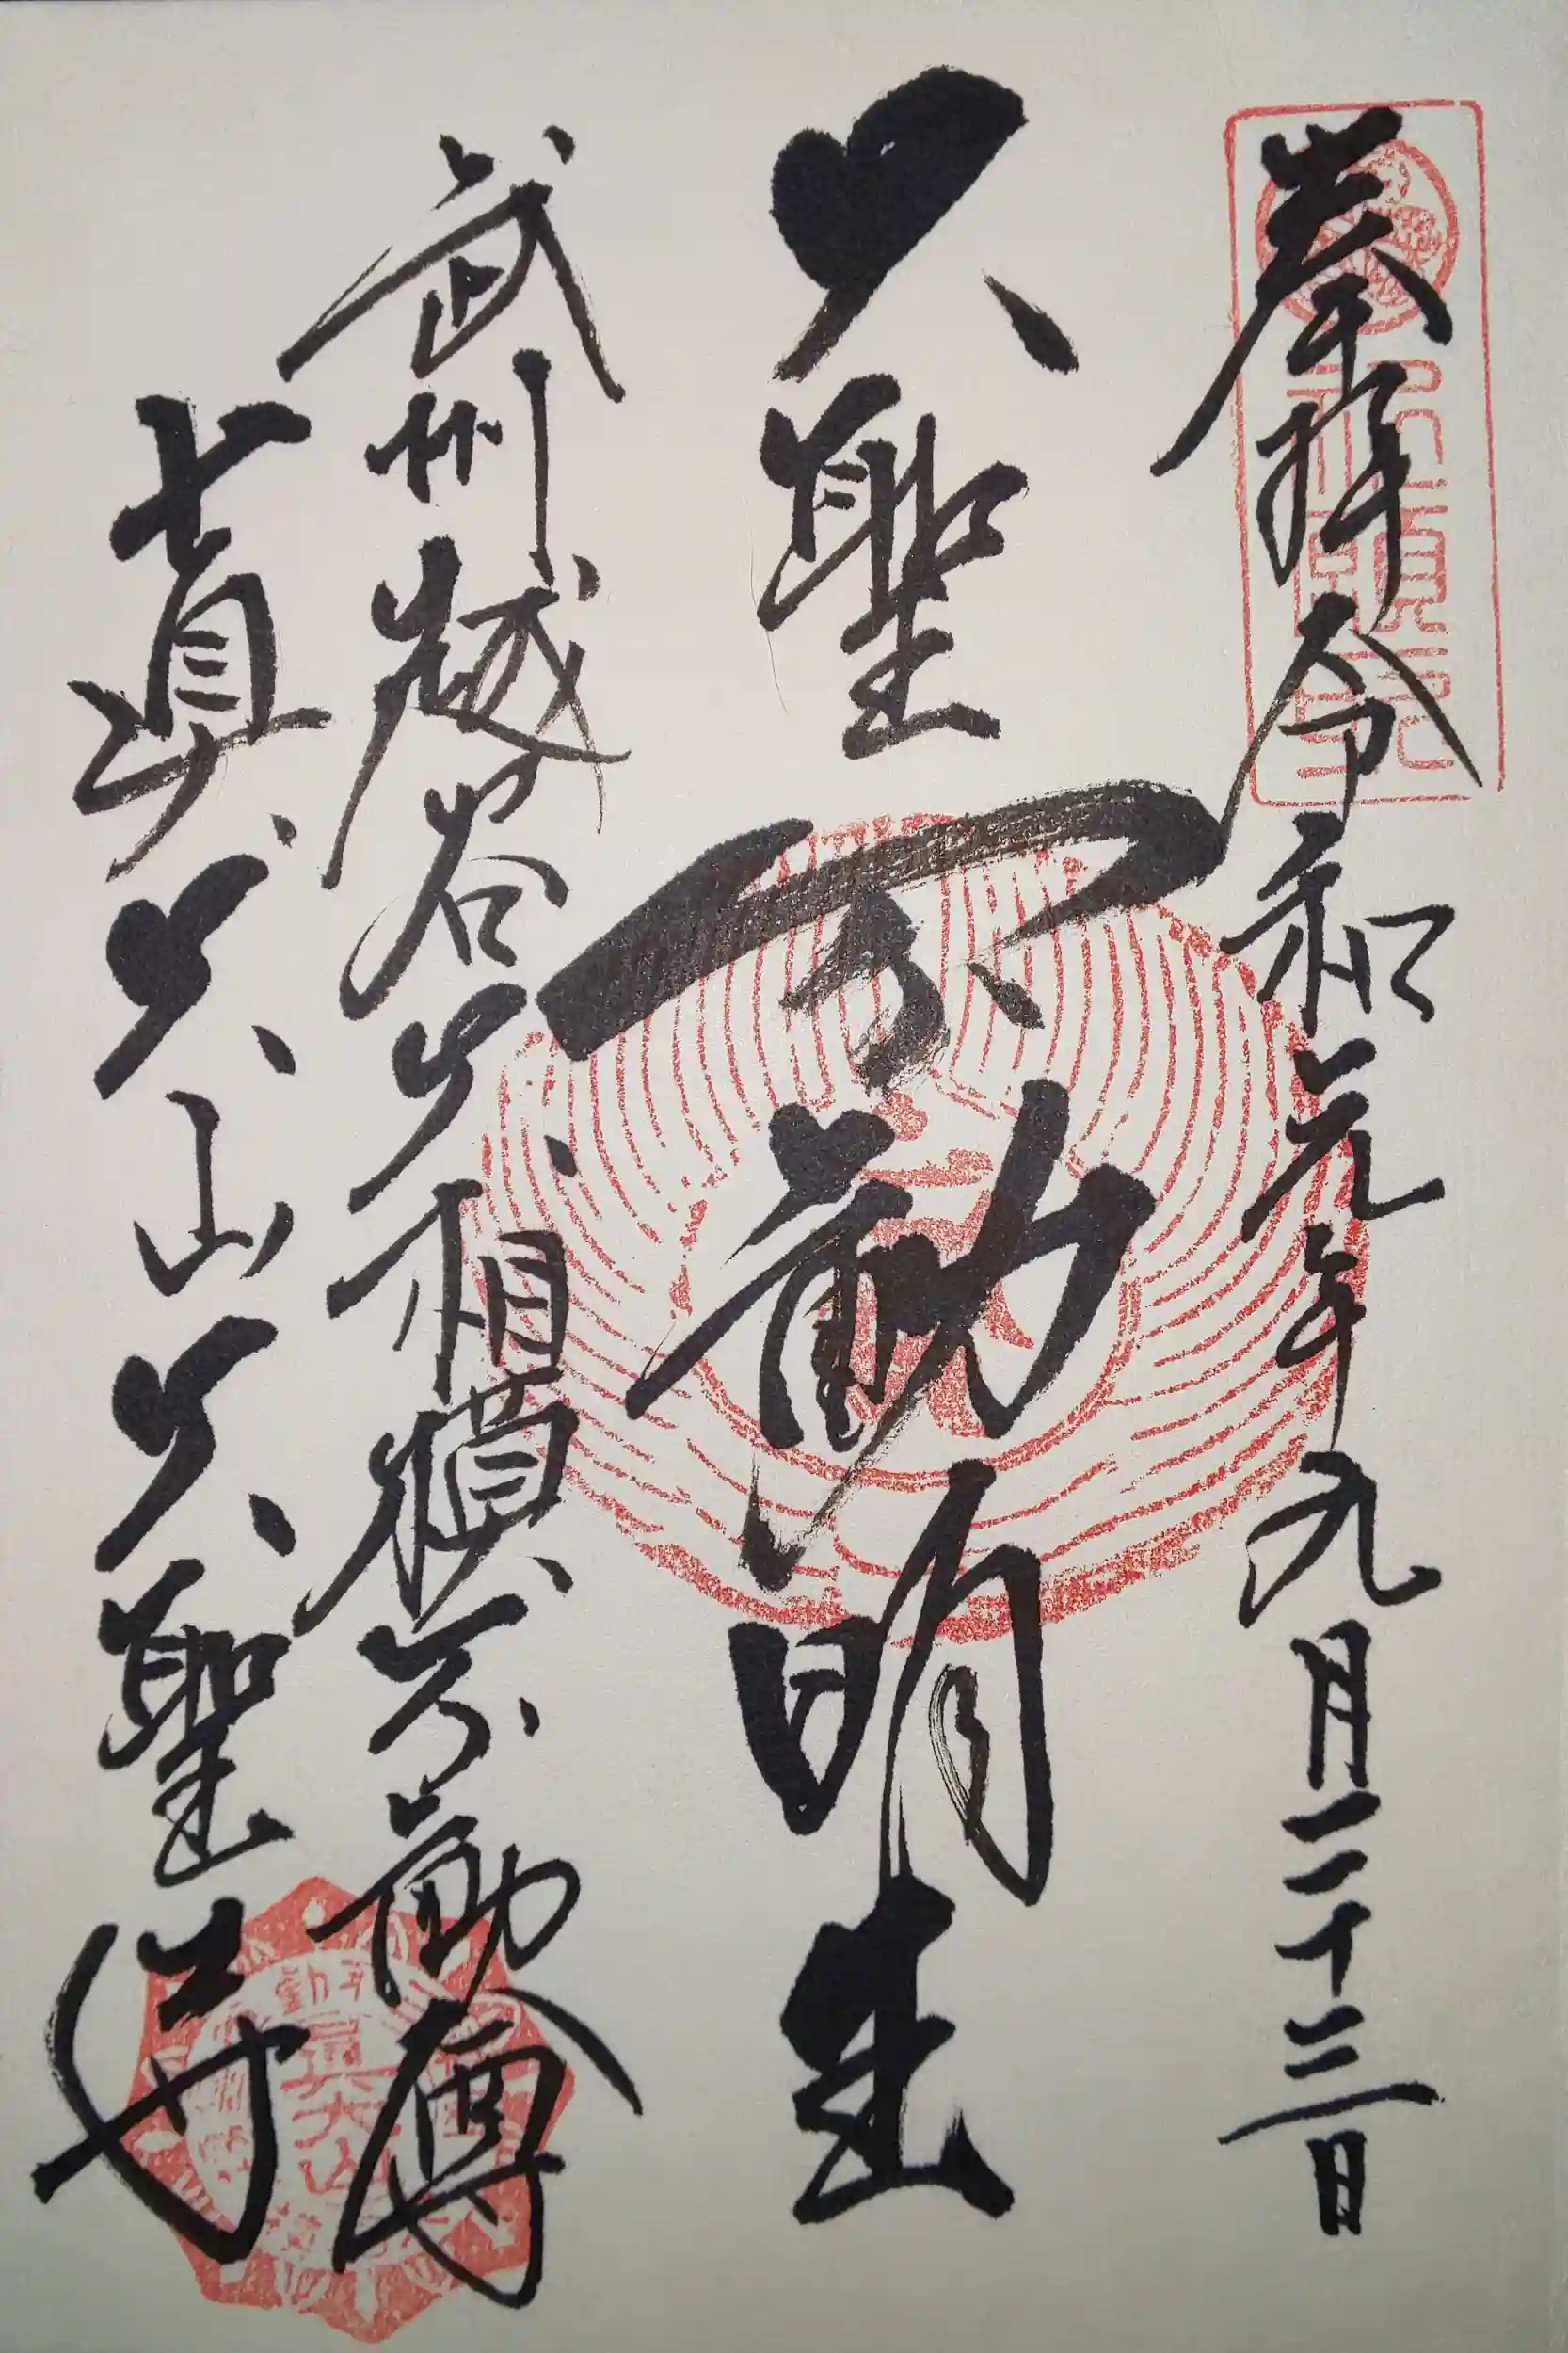 奉拝 令和元年九月二十三日
大聖不動明王
武州越谷大相模不動尊
眞大山大聖寺
眞大山